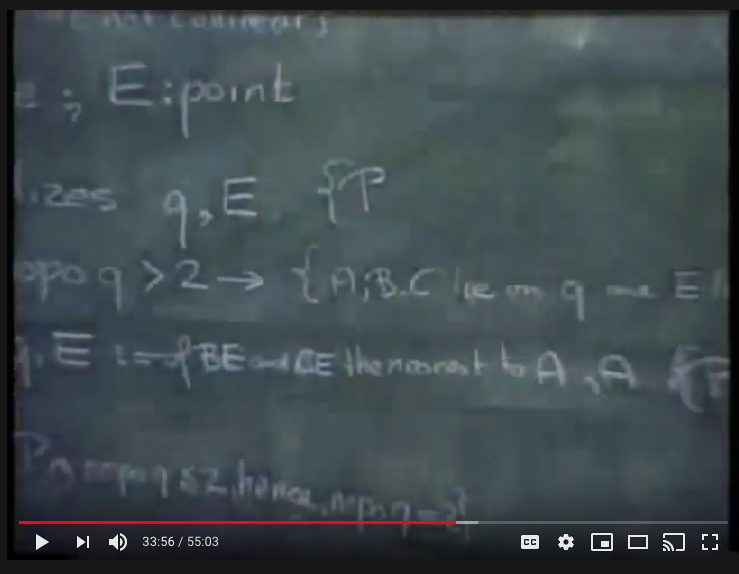 not collinear}
e ; E:point
lizes q,E {P
opo q > 2 → { A,B,C lie on q and E
q,E := {of BE and CE the nearest to A , A {P
P ∧ nopo q ≤ 2, hence, nopo q = 2}
33:56 / 55:03
CC